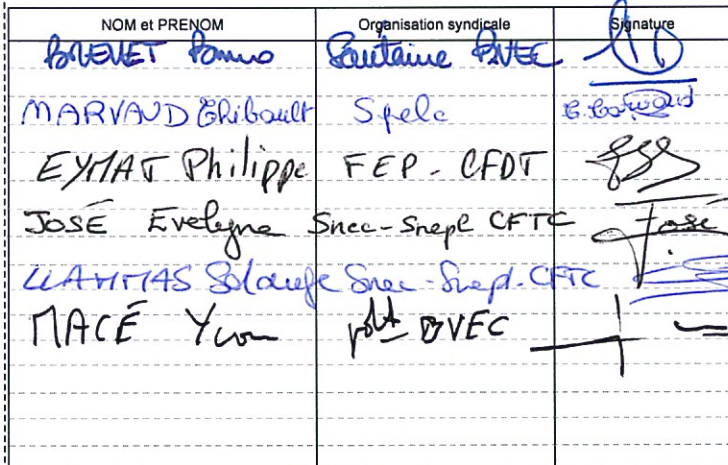 NOM et PRENOM Organisation syndicale Signature
BREVET Bruno BVEC
MARVAUD Thibault Spelc
EYMAT Philippe FEP - CFDT
JOSÉ Evelyne Snec-Snepl CFTC José
Solange Snec-Snepl-CFTC
MACÉ Yvon BVEC